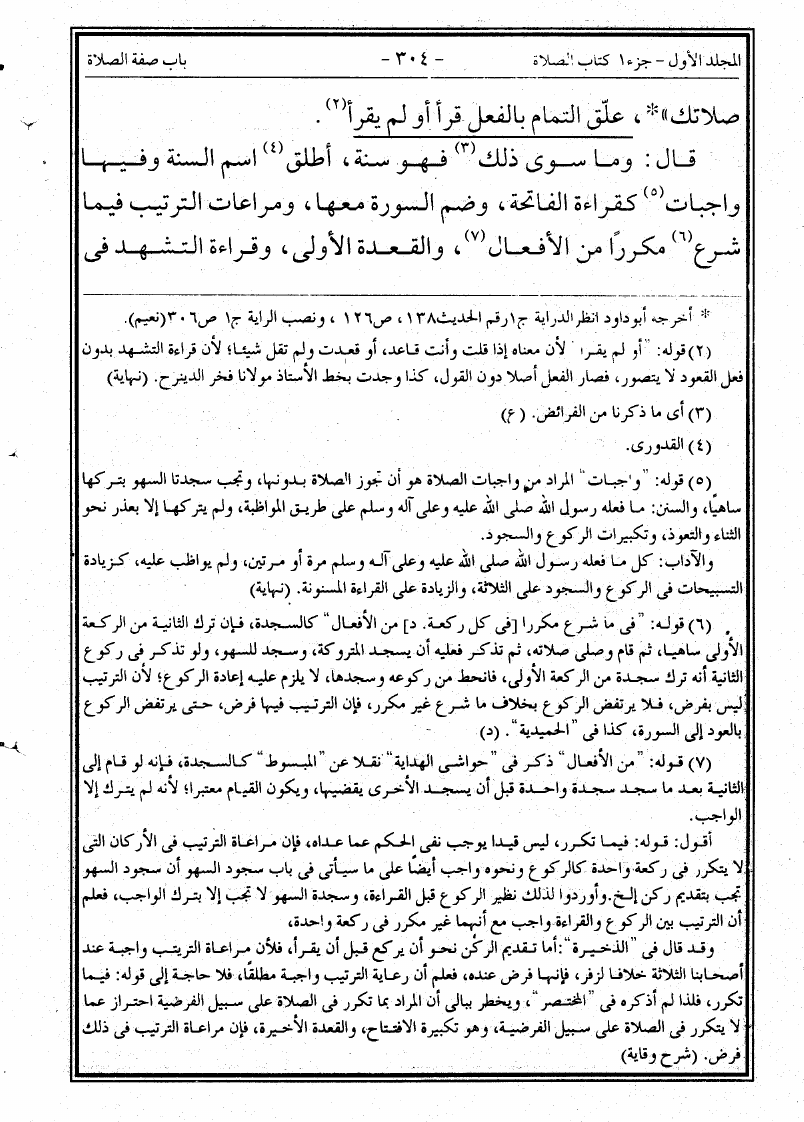 المجلد الأول - جزء١ كتاب الصلاة - ٣٠٤ - باب صفة الصلاة
صلاتك»*، علّق التمام بالفعل قرأ أو لم يقرأ(٢).
قال: وما سوى ذلك(٣) فهو سنة، أطلق(٤) اسم السنة وفيها
واجبات(٥) كقراءة الفاتحة، وضم السورة معها، ومراعات الترتيب فيما
شرع(٦) مكررًا من الأفعال(٧)، والقعدة الأولى، وقراءة التشهد فى
* أخرجه أبوداود انظر الدراية ج١ رقم الحديث١٣٨، ص١٢٦ ، ونصب الراية ج١ ص٣٠٦(نعيم).
(٢) قوله: "أو لم يقرأ لأن معناه إذا قلت وأنت قاعد، أو قعدت ولم تقل شيئا؛ لأن قراءة التشهد بدون
فعل القعود لا يتصور، فصار الفعل أصلا دون القول، كذا وجدت بخط الأستاذ مولانا فخر الدينرح. (نهاية)
(٣) أى ما ذكرنا من الفرائض. (ع)
(٤) القدورى.
(٥) قوله: "واجبات" المراد من واجبات الصلاة هو أن تجوز الصلاة بدونها، وتجب سجدتا السهو بتركها
ساهيًا، والسنن: ما فعله رسول الله صلى الله عليه وعلى آله وسلم على طريق المواظبة، ولم يتركها إلا بعذر نحو
الثناء والتعوذ، وتكبيرات الركوع والسجود.
والآداب: كل ما فعله رسول الله صلى الله عليه وعلى آله وسلم مرة أو مرتين، ولم يواظب عليه، كزيادة
التسبيحات فى الركوع والسجود على الثلاثة، والزيادة على القراءة المسنونة. (نهاية)
(٦) قوله: "فى ما شرع مكررا [فى كل ركعة. د] من الأفعال" كالسجدة، فإن ترك الثانية من الركعة
الأولى ساهيا، ثم قام وصلى صلاته، ثم تذكر فعليه أن يسجد المتروكة، وسجد للسهو، ولو تذكر فى ركوع
الثانية أنه ترك سجدة من الركعة الأولى، فانحط من ركوعه وسجدها، لا يلزم عليه إعادة الركوع؛ لأن الترتيب
ليس بفرض، فلا يرتفض الركوع بخلاف ما شرع غير مكرر، فإن الترتيب فيها فرض، حتى يرتفض الركوع
بالعود إلى السورة، كذا فى "الحميدية". (د)
(٧) قوله: "من الأفعال" ذكر فى "حواشى الهداية" نقلا عن "المبسوط" كالسجدة، فإنه لو قام إلى
الثانية بعد ما سجد سجدة واحدة قبل أن يسجد الأخرى يقضيها، ويكون القيام معتبرا؛ لأنه لم يترك إلا
الواجب.
أقول: قوله: فيما تكرر، ليس قيدا يوجب نفى الحكم عما عداه، فإن مراعاة الترتيب فى الأركان التى
لا يتكرر فى ركعة واحدة كالركوع ونحوه واجب أيضًا على ما سيأتى فى باب سجود السهو أن سجود السهو
تجب بتقديم ركن إلخ.وأوردوا لذلك نظير الركوع قبل القراءة، وسجدة السهو لا تجب إلا بترك الواجب، فعلم
أن الترتيب بين الركوع والقراءة واجب مع أنهما غير مكرر فى ركعة واحدة،
وقد قال فى "الذخيرة":أما تقديم الركن نحو أن يركع قبل أن يقرأ، فلأن مراعاة التريتب واجبة عند
أصحابنا الثلاثة خلافا لزفر، فإنها فرض عنده، فعلم أن رعاية الترتيب واجبة مطلقًا، فلا حاجة إلى قوله: فيما
تكرر، فلذا لم أذكره فى "المختصر"، ويخطر ببالى أن المراد بما تكرر فى الصلاة على سبيل الفرضية احتراز عما
لا يتكرر فى الصلاة على سبيل الفرضية، وهو تكبيرة الافتتاح، والقعدة الأخيرة، فإن مراعاة الترتيب فى ذلك
فرض. (شرح وقاية)